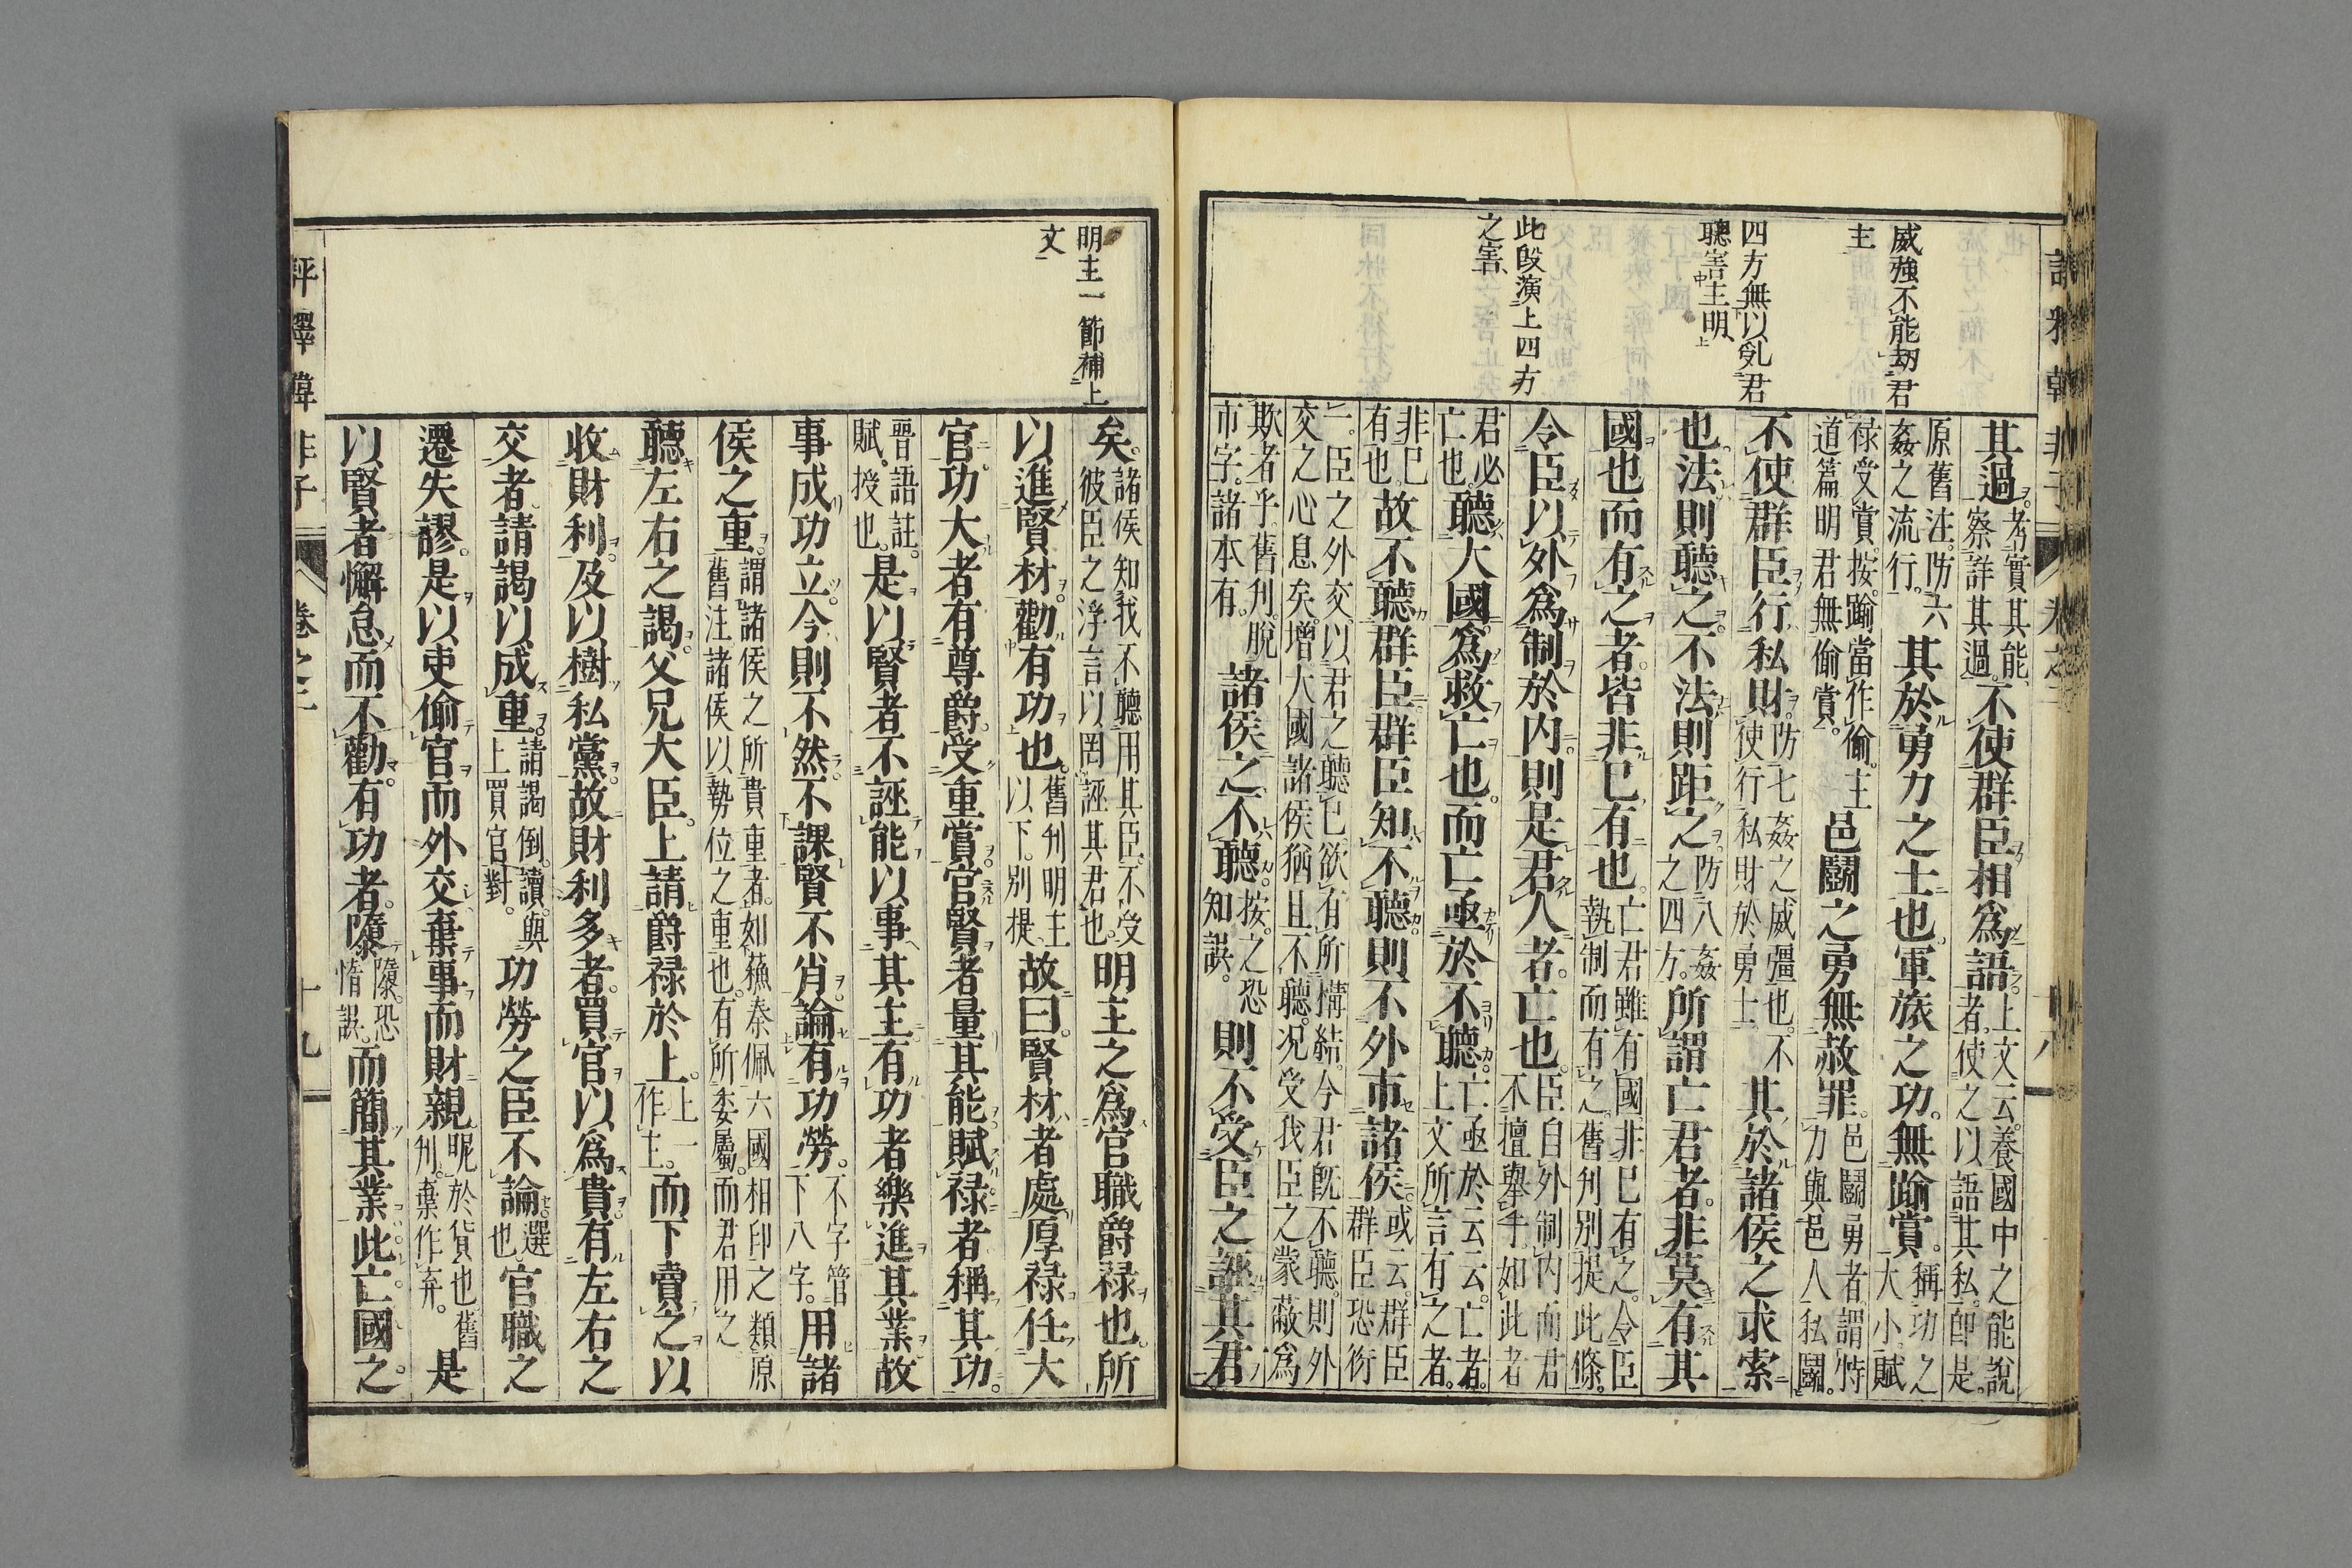 威強不能劫君
主
四方無以乱君
聰害主明
此段演上四方
之害
其過考實其能察詳其過不使群臣相爲語上文云養國中之能說者使之以語其私卽是
原舊注防六姦之流行其於勇力之士也軍旅之功無踰賞稱功之大小賦
禄受賞按踰當作偷主道篇明君無偷賞邑鬭之勇無赦罪邑鬭勇者謂恃力與邑人私鬭
不使群臣行私財防七姦之威彊也不使行私財於勇士其於諸侯之求索
也法則聽之不法則距之防八姦之四方所謂亡君者非莫有其
國也而有之者皆非已有也亡君雖有國非已有之令臣執制而有之舊刋別提此條
令臣以外爲制於内則是君人者亡也臣自外制内而君不擅舉乎如此者
君必亡也聽大國爲救亡也而亡亟於不聽亡亟於云云亡者上文所言有之者
非已有也故不聽群臣群臣知不聽則不外市諸侯或云群臣群臣恐衍
一臣之外交以君之聽已欲有所構結今君既不聽則外交之心息矣増大國諸侯猶且不聽况受我臣之蒙蔽爲
欺者乎舊刋脫市字諸本有諸侯之不聽按之恐知誤則不受臣之誣其君
評釋韓非子
卷之二
十八
明主一節補上
文
矣諸侯知我不聽用其臣不受彼臣之浮言以罔誣其君也明主之爲官職爵禄也所
以進賢材勸有功也舊刋明主以下別提故曰賢材者處厚禄任大
官功大者有尊爵受重賞官賢者量其能賦禄者稱其功
晉語註賦授也是以賢者不誣能以事其主有功者樂進其業故
事成功立今則不然不課賢不肖論有功勞不字管下八字用諸
侯之重謂諸侯之所貴重者如蘓秦佩六國相印之類原舊注諸侯以勢位之重也有所委屬而君用之
聽左右之謁父兄大臣上請爵禄於上上一作主而下賣之以
收財利及以樹私黨故財利多者買官以爲貴有左右之
交者請謁以成重請謁倒讀與上買官對功勞之臣不論選也官職之
遷失謬是以吏偷官而外交棄事而財親昵於貨也舊刋棄作弃是
以賢者懈怠而不勸有功者隳隳恐惰誤而簡其業此亡國之
評釋韓非子
卷之二
十九